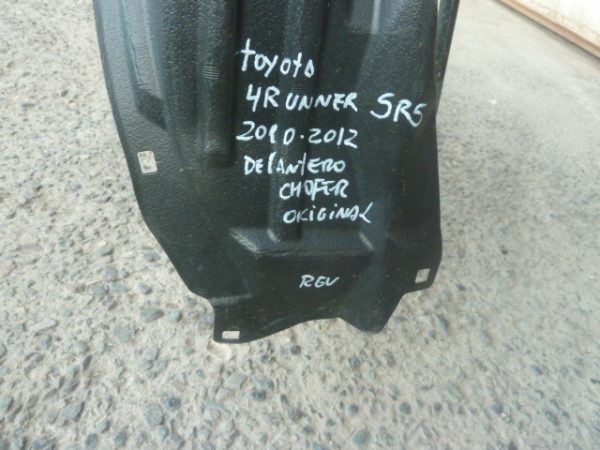 toyota
4RUNNER SR5
2010-2012
DELANTERO
CHOFER
ORIGINAL
REV